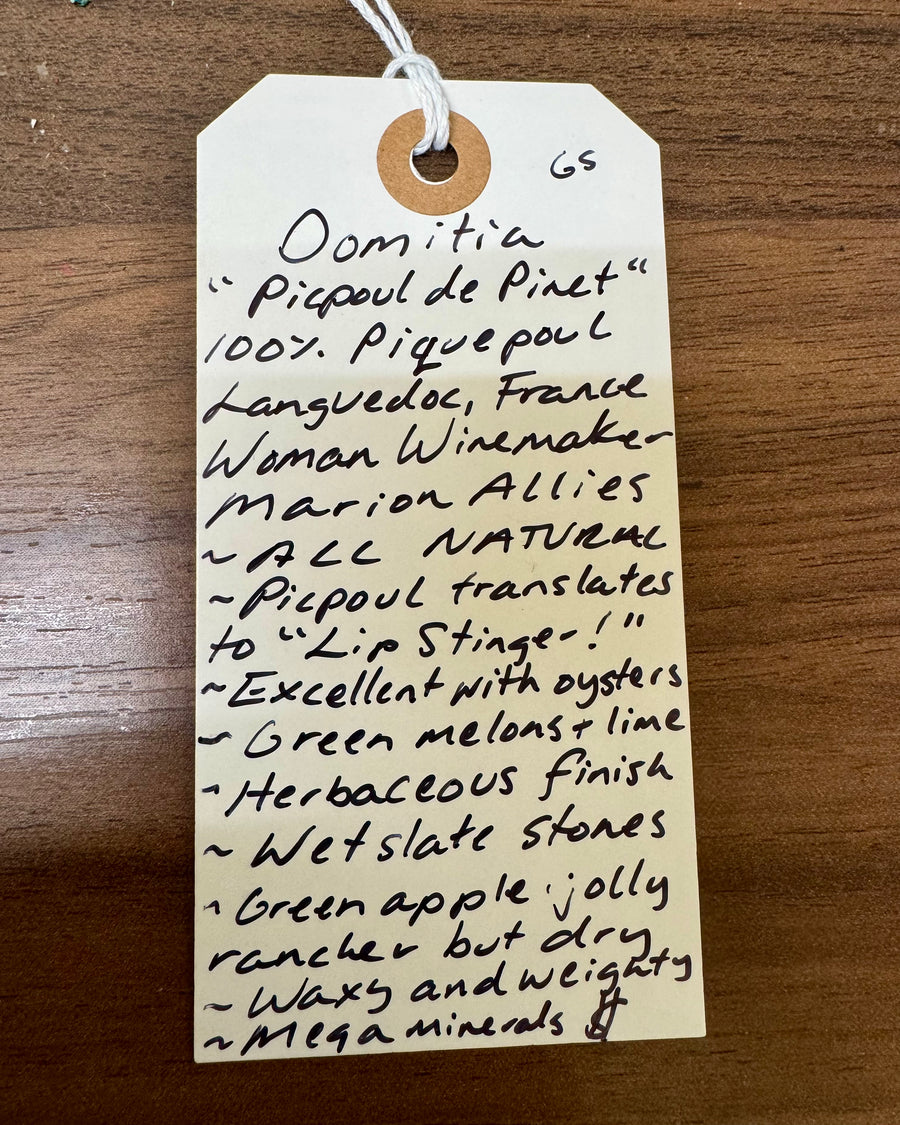 GS
Domitia
"Picpoul de Pinet"
100% Piquepoul
Languedoc, France
Woman Winemaker
Marion Allies
~ ALL NATURAL
~ Picpoul translates
to "Lip Stinger!"
~ Excellent with oysters
~ Green melons + lime
~ Herbaceous finish
~ Wet slate stones
~ Green apple jolly
rancher but dry
~ Waxy and weighty
~ Mega minerals $